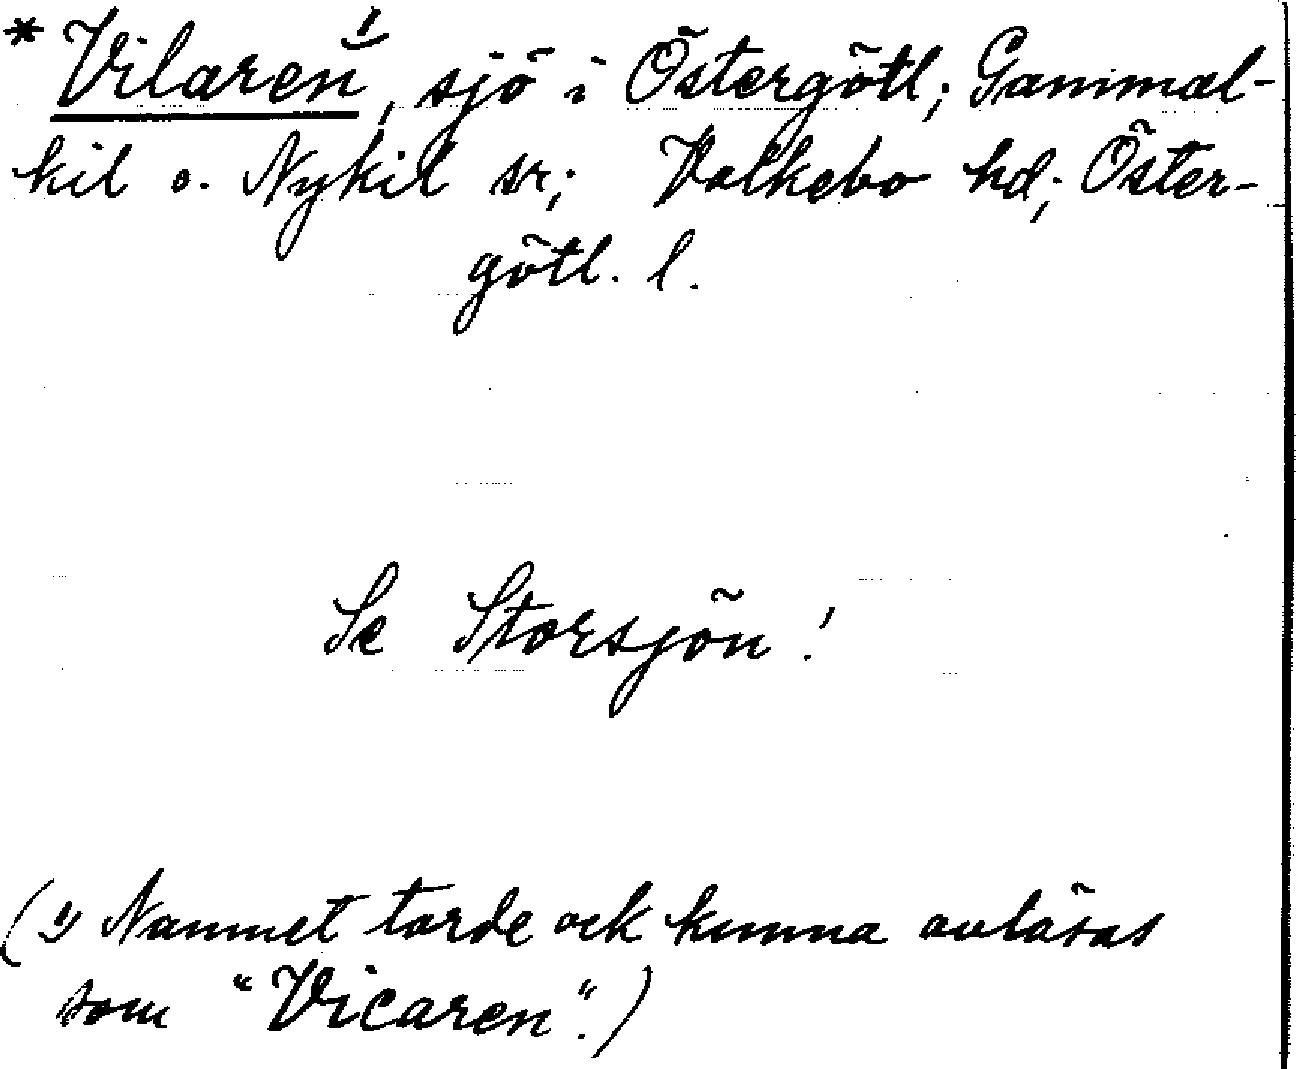 * Vilaren 1), sjö i Östergötl; Gammal-
kil o. Nykil sr; Valkebo hd; Öster-
götl. l.
Se Storsjön!
(1) Namnet torde ock kunna avläsas
som "Vicaren".)